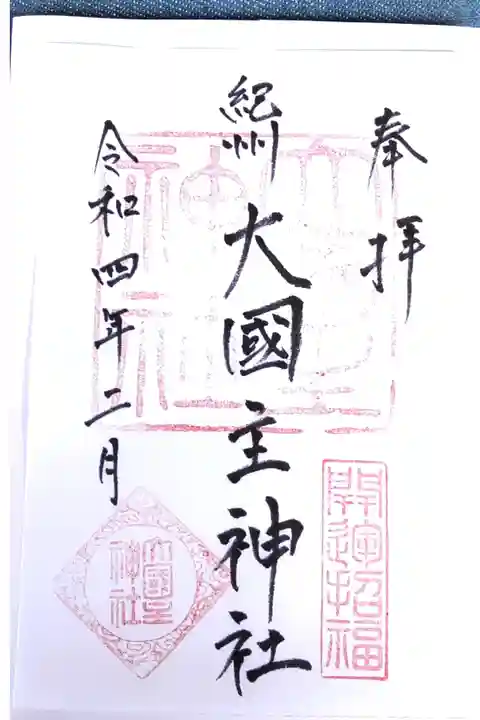 奉拝
紀州
大國主神社
令和四年二月
開運招福
大國主
神社